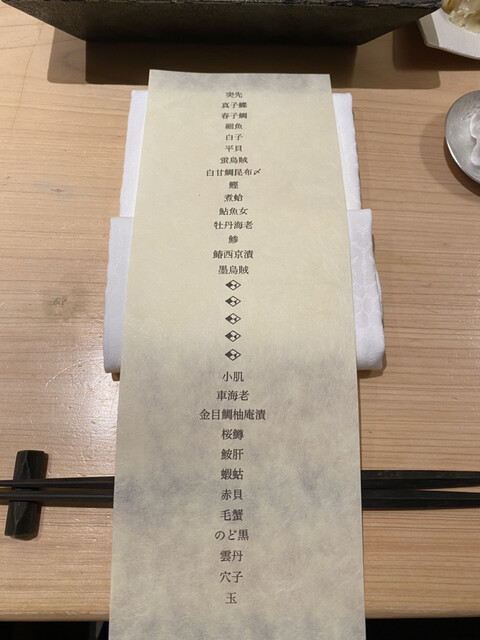 突先
真子鰈
春子鯛
細魚
白子
平貝
蛍烏賊
白甘鯛昆布〆
鰹
煮蛤
鮎魚女
牡丹海老
鯵
鰆西京漬
墨烏賊
小肌
車海老
金目鯛柚庵漬
桜鱒
鮟肝
蝦蛄
赤貝
毛蟹
のど黒
雲丹
穴子
玉